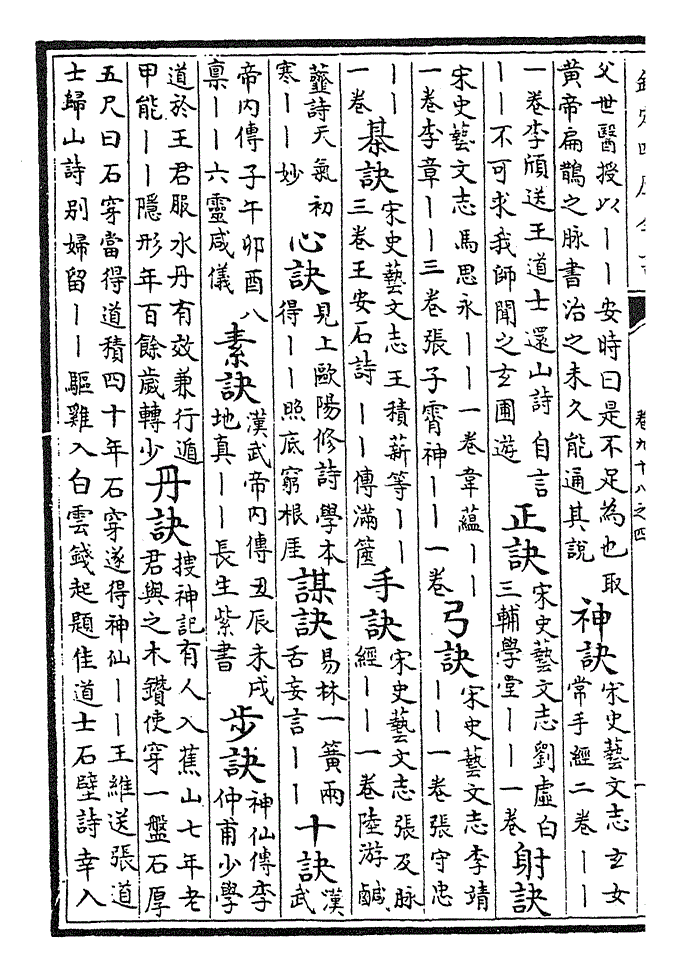 欽定四庫全書
卷九十八之四
父世醫授以丨丨安時曰是不足為也取
黃帝扁鵲之脉書治之未久能通其說
神訣
宋史藝文志玄女
常手經二卷丨丨
一卷李頎送王道士還山詩自言
丨丨不可求我師聞之玄圃遊
正訣
宋史藝文志劉虛白
三輔學堂丨丨一卷
射訣
宋史藝文志馬思永丨丨一卷韋蘊丨丨
一卷李章丨丨三卷張子霄神丨丨一卷
弓訣
宋史藝文志李靖
丨丨一卷張守忠
丨丨
一卷
棊訣
宋史藝文志王積薪等丨丨
三卷王安石詩丨丨傳滿篋
手訣
宋史藝文志張及脉
經丨丨一卷陸游鹹
虀詩天氣初
寒丨丨妙
心訣
見上歐陽修詩學本
得丨丨照底窮根厓
謀訣
易林一簧兩
舌妄言丨丨
十訣
漢
武
帝內傳子午卯酉八
稟丨丨六靈咸儀
素訣
漢武帝內傳丑辰未戌
地真丨丨長生紫書
步訣
神仙傳李
仲甫少學
道於王君服水丹有效兼行遁
甲能丨丨隱形年百餘歲轉少
丹訣
搜神記有人入蕉山七年老
君與之木鑽使穿一盤石厚
五尺曰石穿當得道積四十年石穿遂得神仙丨丨王維送張道
士歸山詩別婦留丨丨驅雞入白雲錢起題佳道士石壁詩幸入